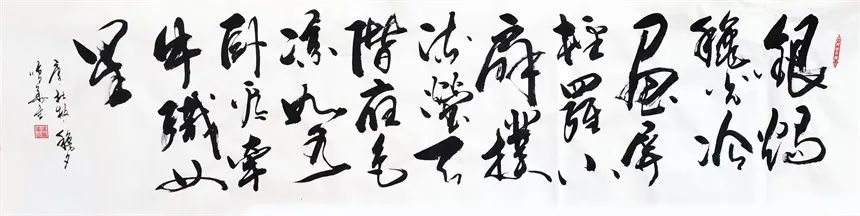 銀燭
穐光冷
画屏
輕羅小
扇撲
流螢天
階夜色
凉如水
卧看牵
牛織女
星
唐杜牧穐夕